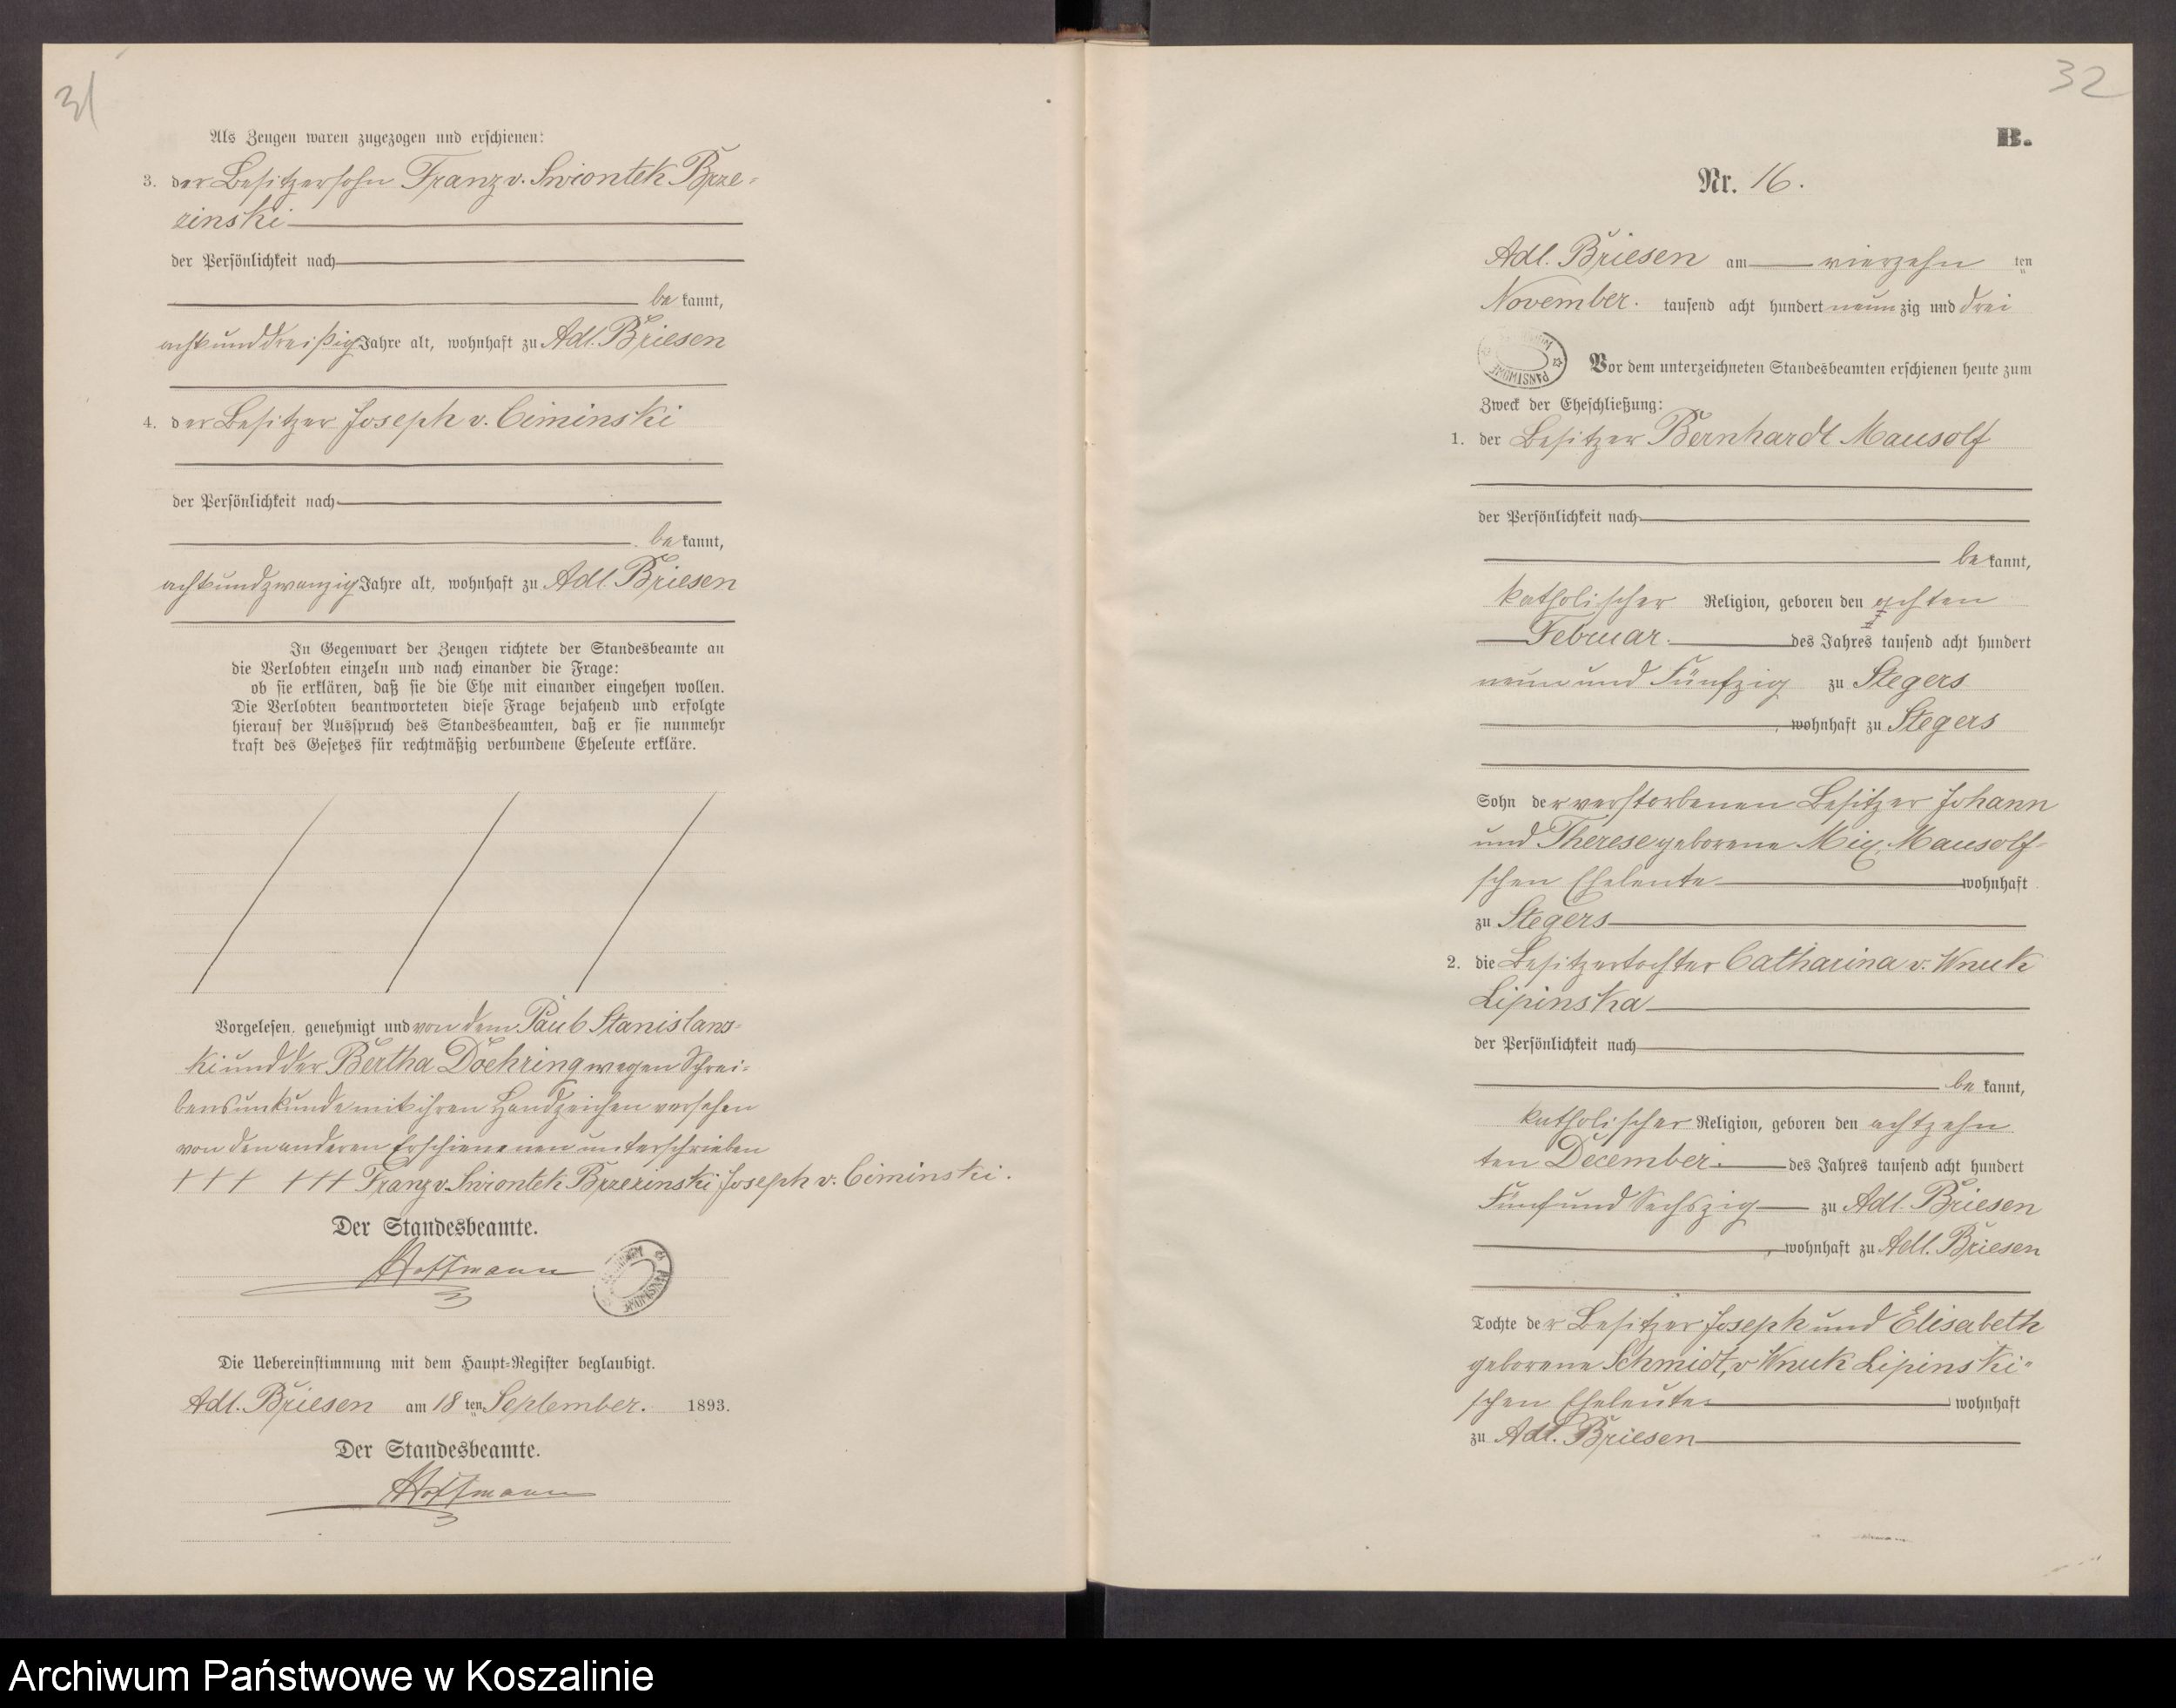 31
Als Zeugen waren zugezogen und erschienen:
3. der Besitzersohn Franz v. Swiontek Brze-
zinski
der Persönlichkeit nach
be kannt,
achtunddreißig Jahre alt, wohnhaft zu Adl. Briesen
4. der Besitzer Joseph v. Ciminski
der Persönlichkeit nach
be kannt,
achtundzwanzig Jahre alt, wohnhaft zu Adl. Briesen
In Gegenwart der Zeugen richtete der Standesbeamte an
die Verlobten einzeln und nach einander die Frage:
ob sie erklären, daß sie die Ehe mit einander eingehen wollen.
Die Verlobten beantworteten diese Frage bejahend und erfolgte
hierauf der Ausspruch des Standesbeamten, daß er sie nunmehr
kraft des Gesetzes für rechtmäßig verbundene Eheleute erkläre.
Vorgelesen, genehmigt und von dem Paul Stanislaws-
ki und der Bertha Doehring wegen Schrei-
bensunkunde mit ihren Handzeichen versehen
von den anderen Erschienenen unterschrieben
+++ +++ Franz v. Swiontek Brzezinski Joseph v. Ciminski.
Der Standesbeamte.
Hoffmann
Die Uebereinstimmung mit dem Haupt-Register beglaubigt.
Adl. Briesen am 18 ten September. 1893.
Der Standesbeamte.
Hoffmann
32
B.
Nr. 16.
Adl. Briesen am vierzehn ten
November. tausend acht hundert neunzig und drei
PAŃSTWOWE
Vor dem unterzeichneten Standesbeamten erschienen heute zum
Zweck der Eheschließung:
1. der Besitzer Bernhardt Mausolf
der Persönlichkeit nach
be kannt,
katholischer Religion, geboren den achten
Februar. des Jahres tausend acht hundert
neun und Fünfzig zu Stegers
, wohnhaft zu Stegers
Sohn der verstorbenen Besitzer Johann
und Therese geborene Mix, Mausolf-
schen Eheleute wohnhaft
zu Stegers
2. die Besitzertochter Catharina v. Wnuk
Lipinska
der Persönlichkeit nach
be kannt,
katholischer Religion, geboren den achtzehn
ten December. des Jahres tausend acht hundert
Fünf und Sechszig zu Adl. Briesen
, wohnhaft zu Adl. Briesen
Tochte der Besitzer Joseph und Elisabeth
geborene Schmidt, v Wnuk Lipinski-
schen Eheleute wohnhaft
zu Adl. Briesen
Archiwum Państwowe w Koszalinie